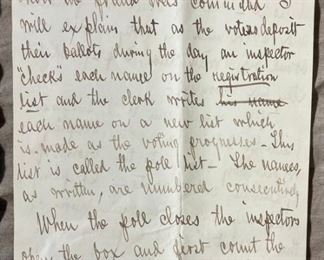 will explain that as the voters deposit
their ballots during the day an inspector
"checks" each name on the registration
list and the clerk writes his name
each name on a new list which
is made as the voting progresses – This
list is called the poll list – The names,
as written, are numbered consecutively
When the poll closes the inspectors
open the box and first count the